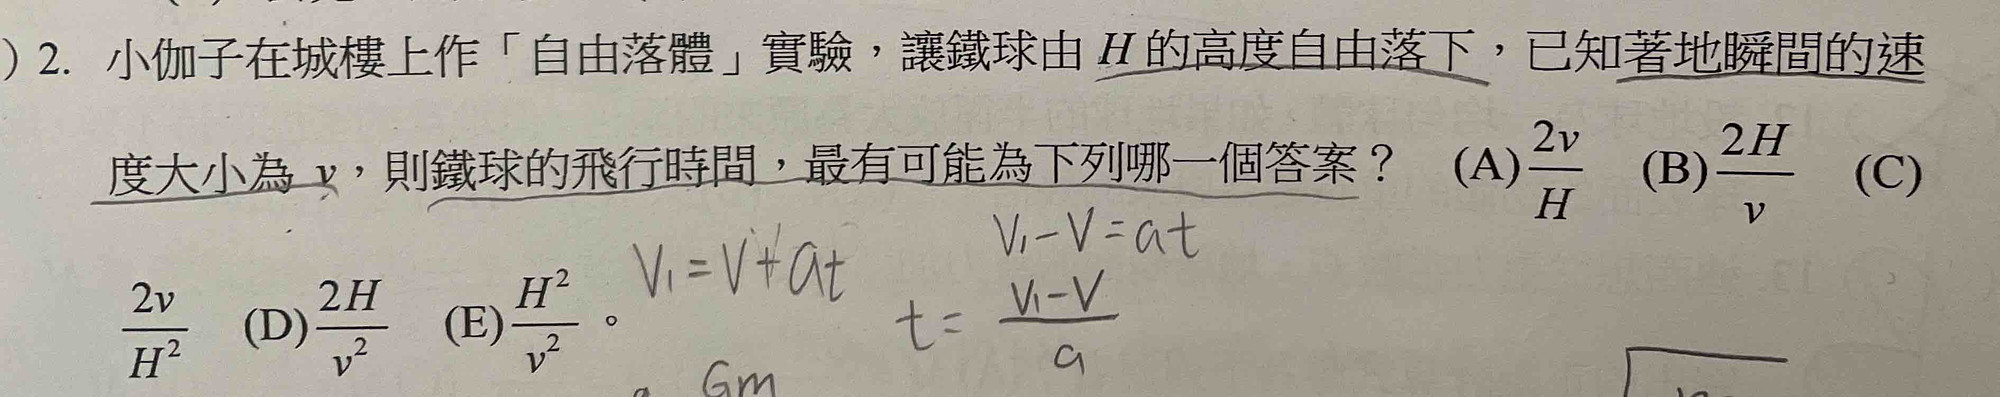 ) 2. 小伽子在城樓上作「自由落體」實驗,讓鐵球由 H 的高度自由落下,已知著地瞬間的速
度大小為 v,則鐵球的飛行時間,最有可能為下列哪一個答案? (A) 2v/H (B) 2H/v (C)
2v/H² (D) 2H/v² (E) H²/v² 。
V₁=V+at
V₁-V=at
t= (V₁-V)/a
Gm